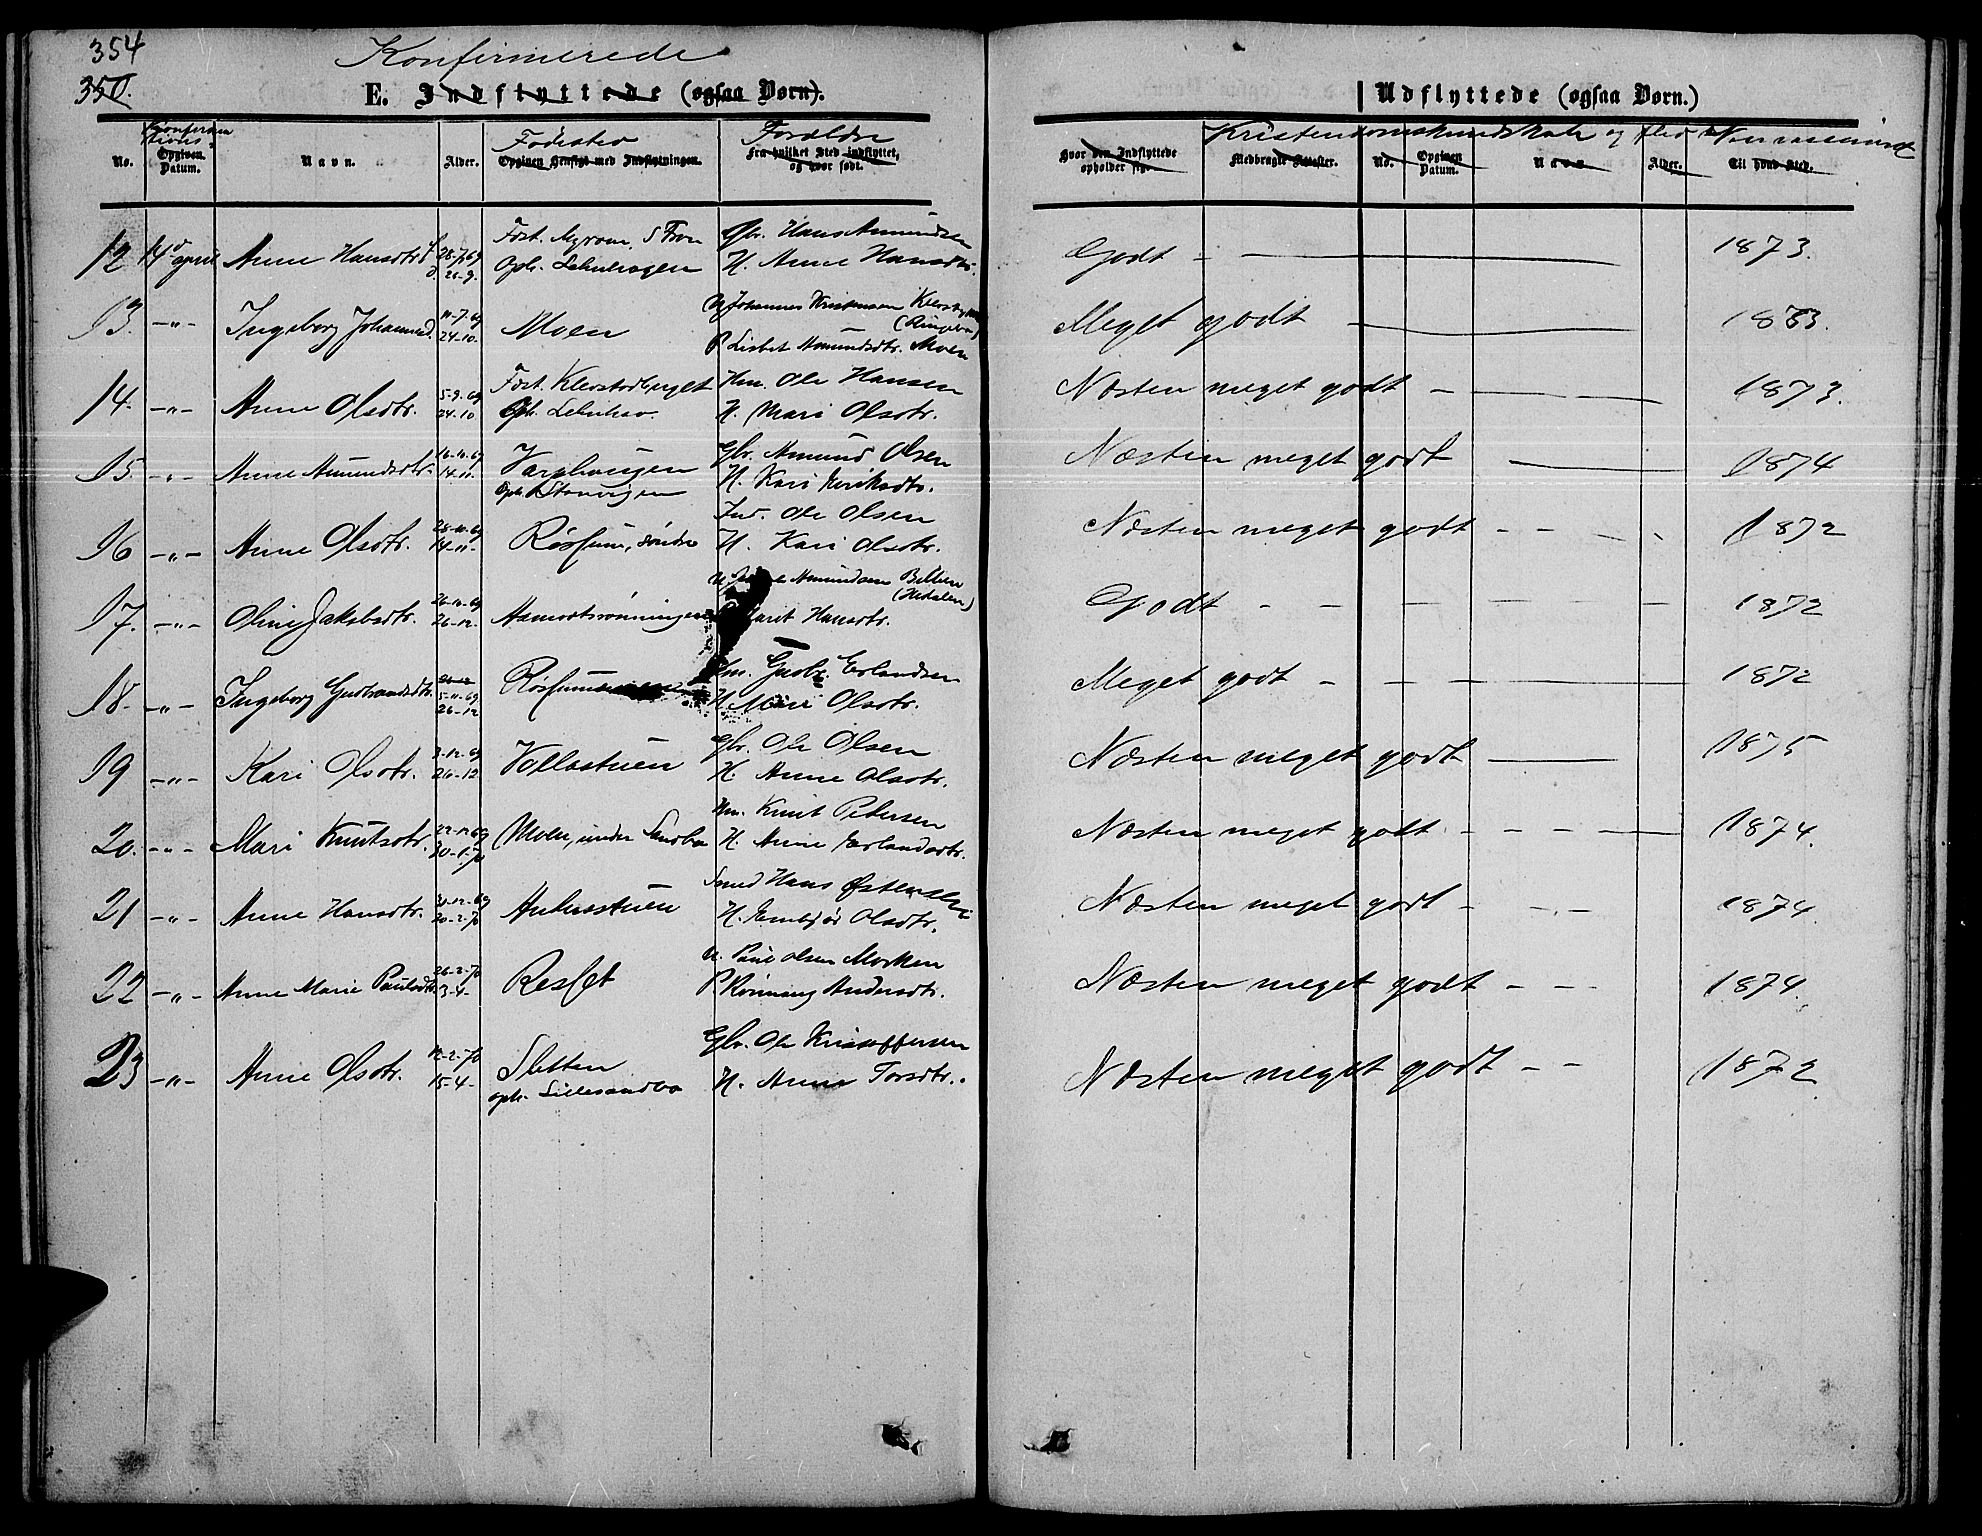 354
350.
Konfirmerede
E. Indflyttede (ogsaa Børn).
Udflyttede (ogsaa Børn.)
No.
Opgiven Datum.
Navn.
Alder.
Fødested
Opgiven Hensigt med Indflytningen.
Forældre
Fra hvilket Sted indflyttet, og hvor født.
Kristendomskundskab og Flid
Vaccineret
Hvor den Indflyttede opholder sig.
Medbragte Attester.
No.
Opgiven Datum.
Navn.
Alder.
Til hvad Sted.
12 14de april Anne Hansdtr. f 28-7-69 d 26-9. Føst. Myrom, S Fron Gbr. Hans Amundsen Godt - 1873.
Oph. H. Anne Hansdtr.
13. -"- Ingeborg Johannesd. 11-7-69 24-10. Moen U Johannes Kristensen (Ringebu) Meget godt 1883.
P Lisbet Amundsdtr. Moen
14. -"- Anne Olsdtr. 5-9-69 24-10 Føst. Klevstadberget Hm. Ole Hansen Næsten meget godt - 1873.
Oph. H. Mari Olsdtr.
15. -"- Anne Amundsdtr. 16-10-69 14-11. Gbr. Amund Olsen Næsten meget godt 1874
Oph. H. Kari Eriksdtr.
16 -"- Anne Olsdtr. 28-10-69 14-11- søndre Ind. Ole Olsen Næsten meget godt - - 1872
H. Kari Olsdtr.
17. -"- Oline Jakobsdtr. 26-10-69 26-12. U Amundsen (Hedalen) Godt - - - 1872
Marit Hansdtr.
18. -"- Ingeborg Gudbrandsdtr. 5-11-69 26-12 Gudbr. Erlandsen Meget godt - - 1872
H Mari Olsdtr.
19 -"- Kari Olsdtr. 3-12-69 26-12 Vollastuen Gbr. Ole Olsen Næsten meget godt 1875
H. Anne Olsdtr.
20. -"- Mari Knutsdtr. 22-12-69 30-1-70 Moen, under Sandbu Hm. Knut Pedersen Næsten meget godt - - - 1874.
H. Anne Erlandsdtr.
21 -"- Anne Hansdtr. 30-12-69 20-2-70 Smed Hans Østensen Næsten meget godt - - - 1874.
H. Embjør Olsdtr.
22 -"- Anne Marie Paulsdtr. 26-2-70 3-4- U. Paul Olsen Morken Næsten meget godt - - 1874.
P Rønnaug Andersdtr.
23 -"- Anne Olsdtr. 12-2-70 15-4- Sletten Gbr. Ole Kristoffersen Næsten meget godt - - 1872
oph. Lillesandbu H. Anne Torsdtr.